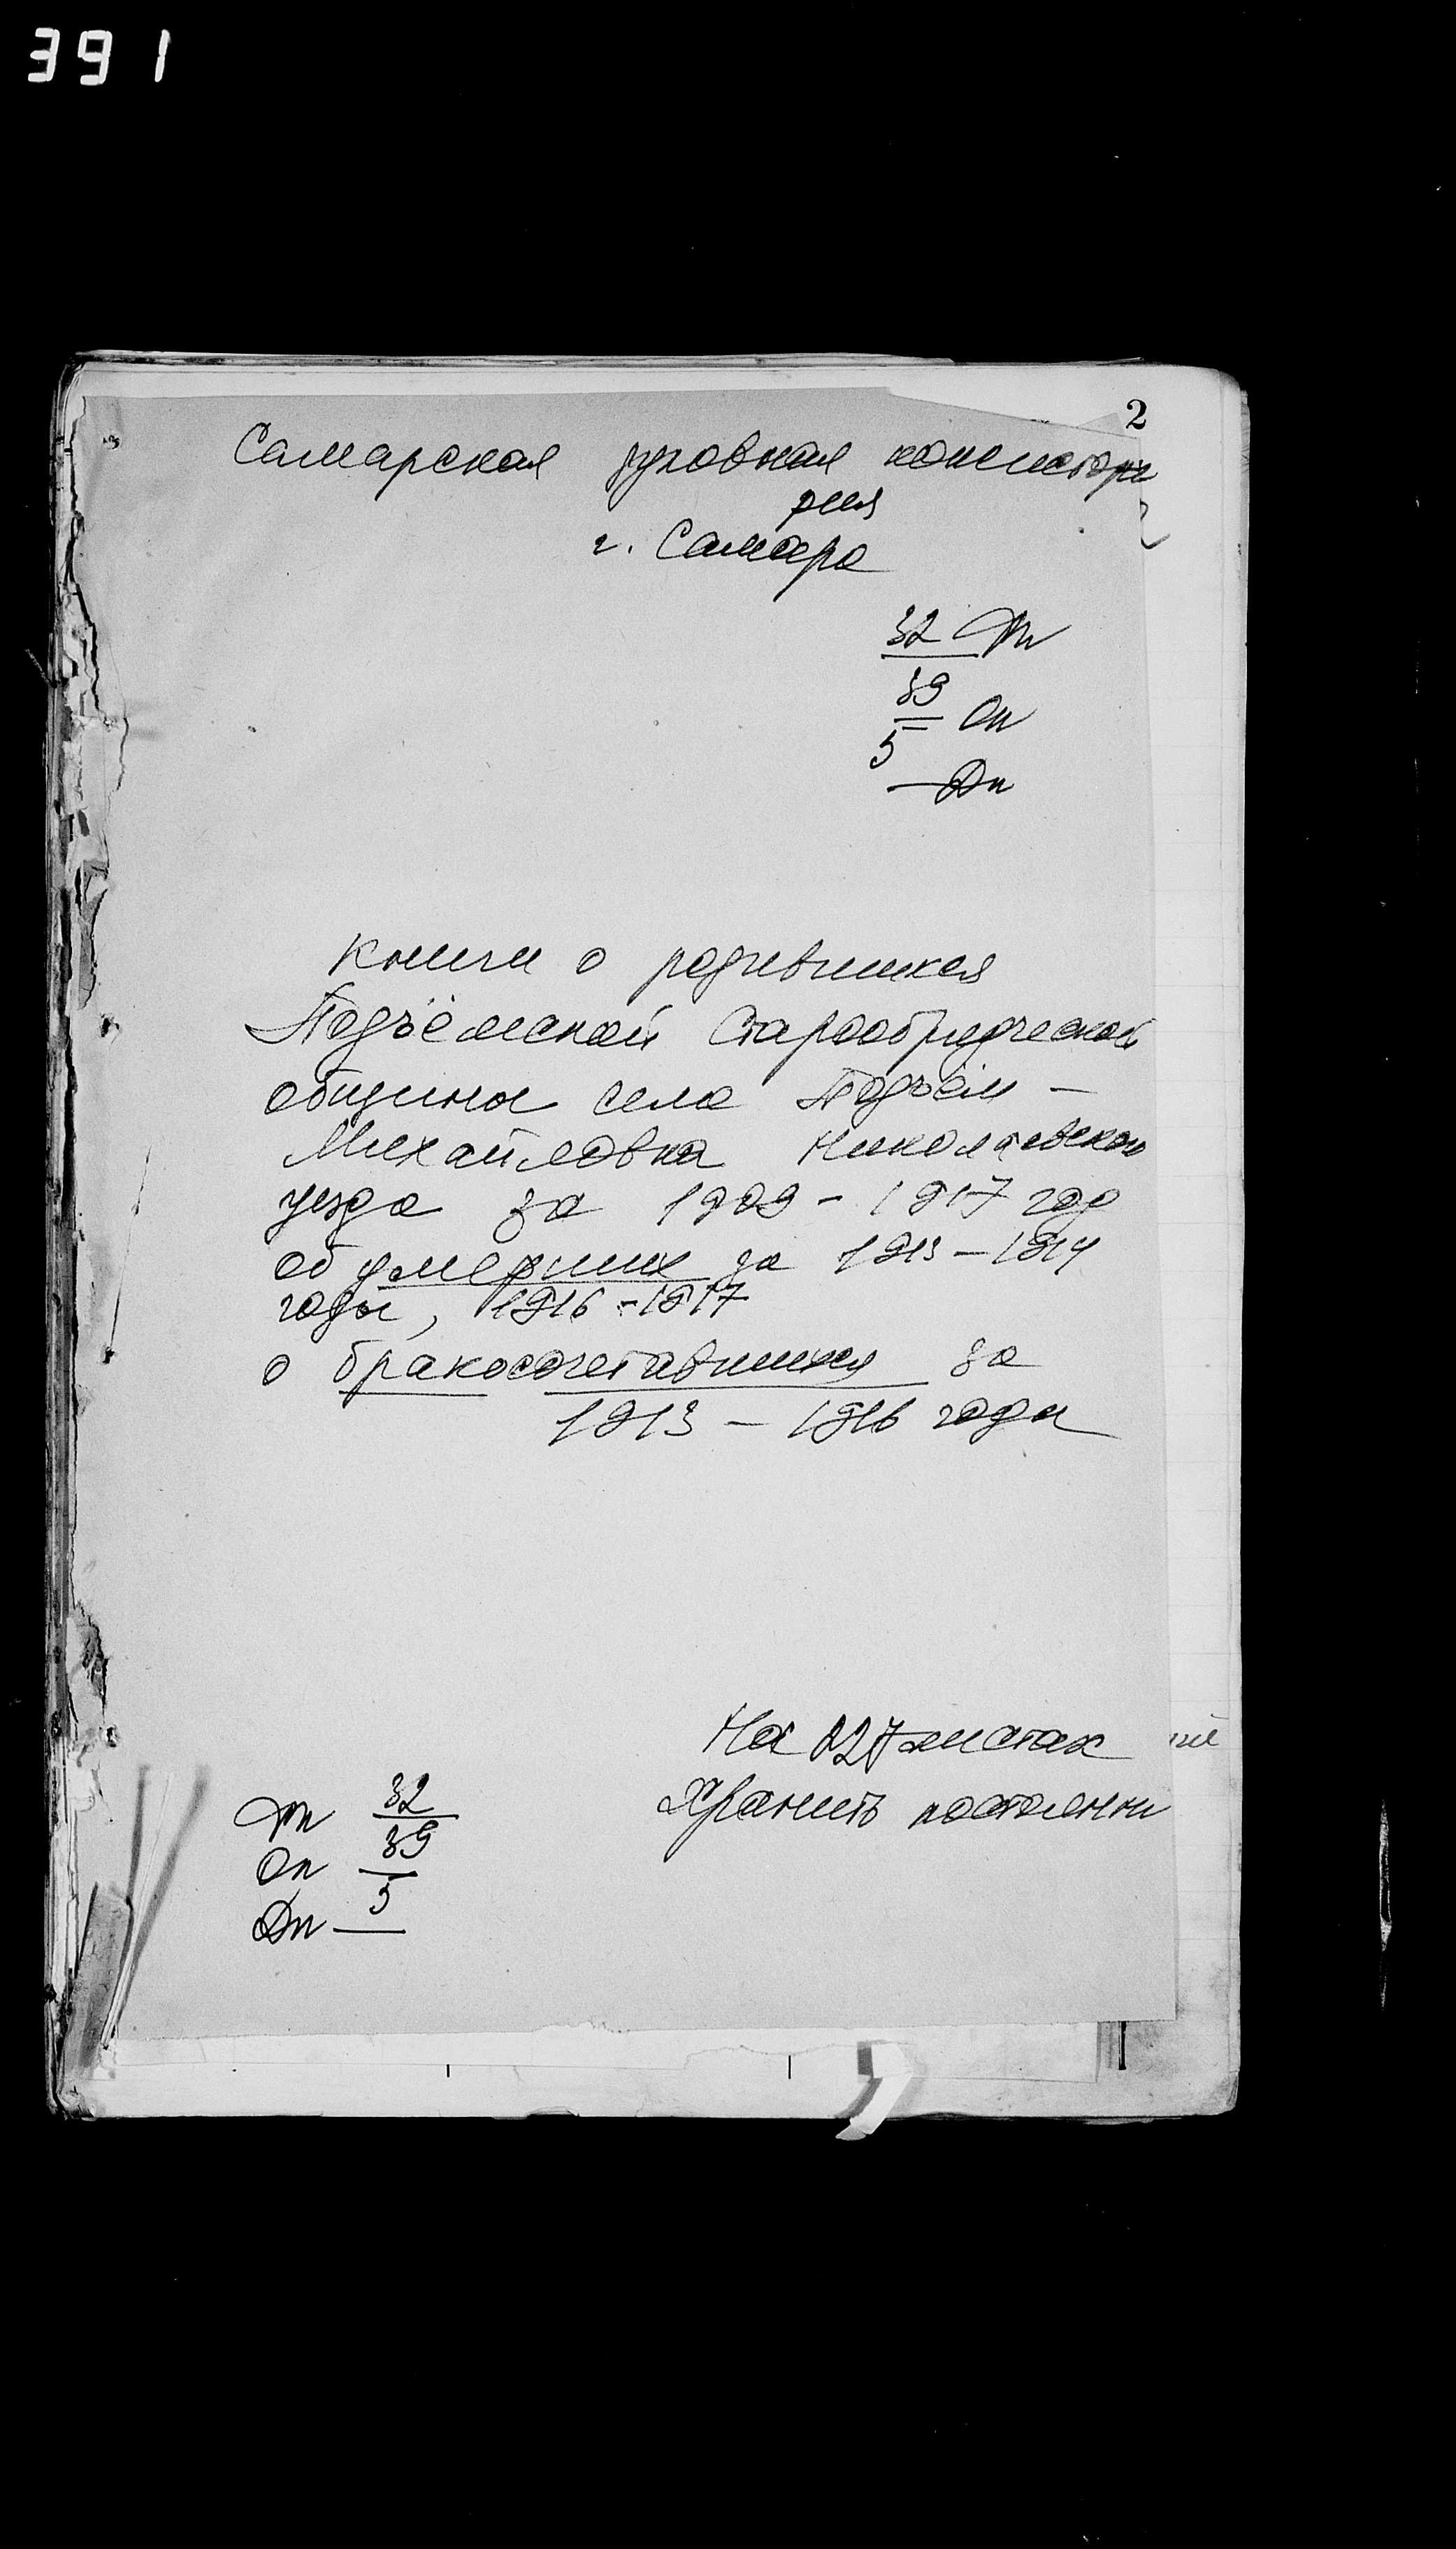 391
2
Самарская духовная консистори
рия
г. Самара
32 Фн
39 Оп
5
Дп
Книги о родившихся
Подъёмской Старообрядческой
общины села Подъём-
Михайловка Николаевского
уезда за 1909 - 1917 год
об умерших за 1913 - 1914
годы, 1916 - 1917
о бракосочетавшихся за
1913 - 1916 годы
На 227 листах
Хранить постоянно
Фн 32
Оп 39
Дп 5